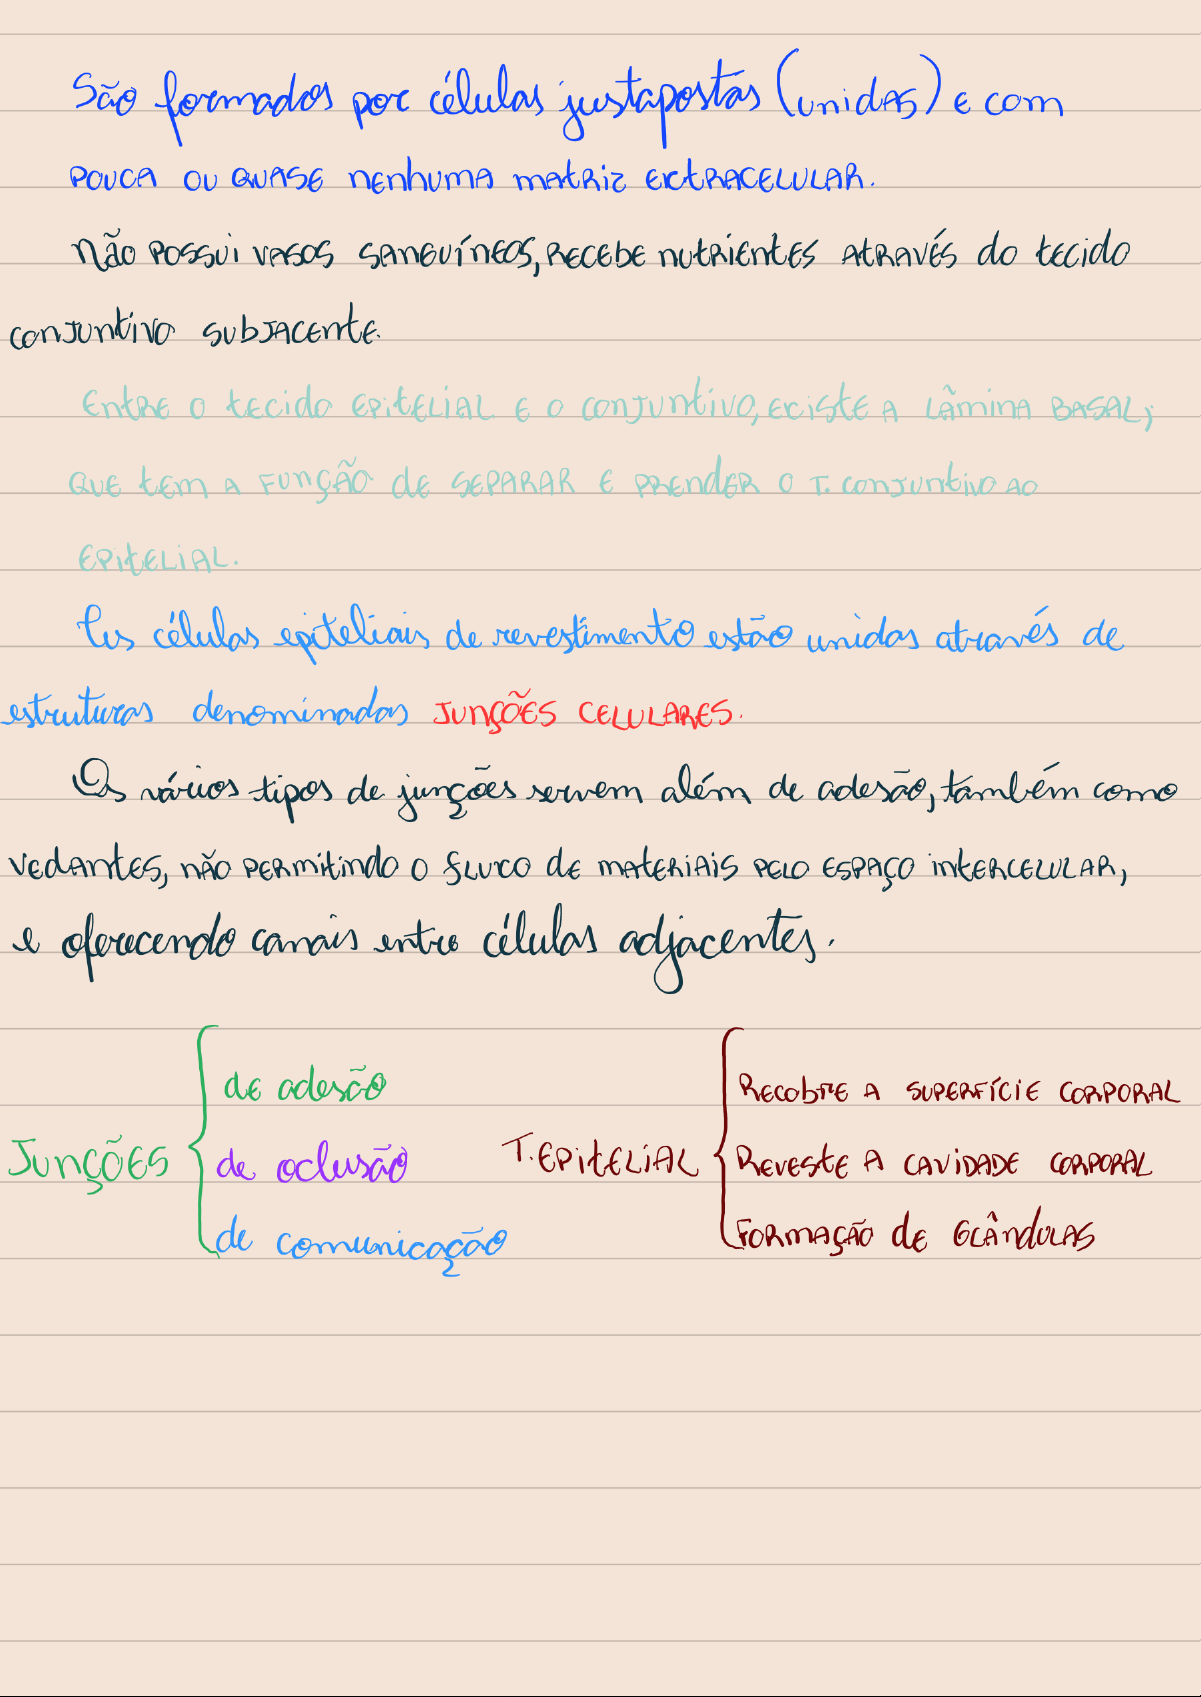 São formados por células justapostas (unidas) e com
pouca ou quase nenhuma matriz extracelular.
Não possui vasos sanguíneos, recebe nutrientes através do tecido
conjuntivo subjacente.
Entre o tecido epitelial e o conjuntivo, existe a lâmina basal;
que tem a função de separar e prender o t. conjuntivo ao
epitelial.
As células epiteliais de revestimento estão unidas através de
estruturas denominadas junções celulares.
Os vários tipos de junções servem além de adesão, também como
vedantes, não permitindo o fluxo de materiais pelo espaço intercelular,
e oferecendo canais entre células adjacentes.
Junções { de adesão
de oclusão
de comunicação
T. epitelial { Recobre a superfície corporal
Reveste a cavidade corporal
Formação de glândulas